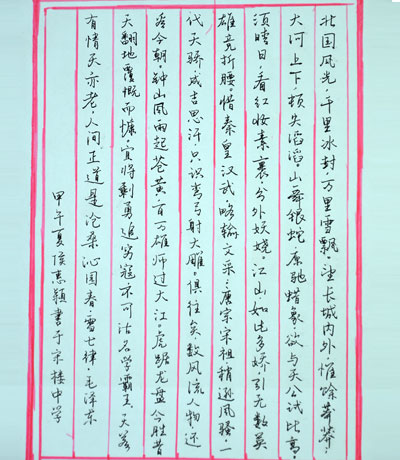 北国风光，千里冰封，万里雪飘。望长城内外，惟馀莽莽；
大河上下，顿失滔滔。山舞银蛇，原驰蜡象，欲与天公试比高。
须晴日，看红妆素裹，分外妖娆。江山如此多娇，引无数英
雄竞折腰。惜秦皇汉武，略输文采；唐宗宋祖，稍逊风骚。一
代天骄，成吉思汗，只识弯弓射大雕。俱往矣，数风流人物，还
看今朝。钟山风雨起苍黄，百万雄师过大江。虎踞龙盘今胜昔，
天翻地覆慨而慷。宜将剩勇追穷寇，不可沽名学霸王。天若
有情天亦老，人间正道是沧桑。沁园春·雪 七律·毛泽东
甲午夏侯志颖书于宋楼中学